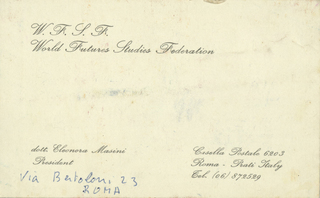 W. F. S. F.
World Futures Studies Federation
dott. Eleonora Masini
President
Casella Postale 6203
Roma - Prati Italy
Tel. (06) 872529
Via Bertoloni 23
ROMA